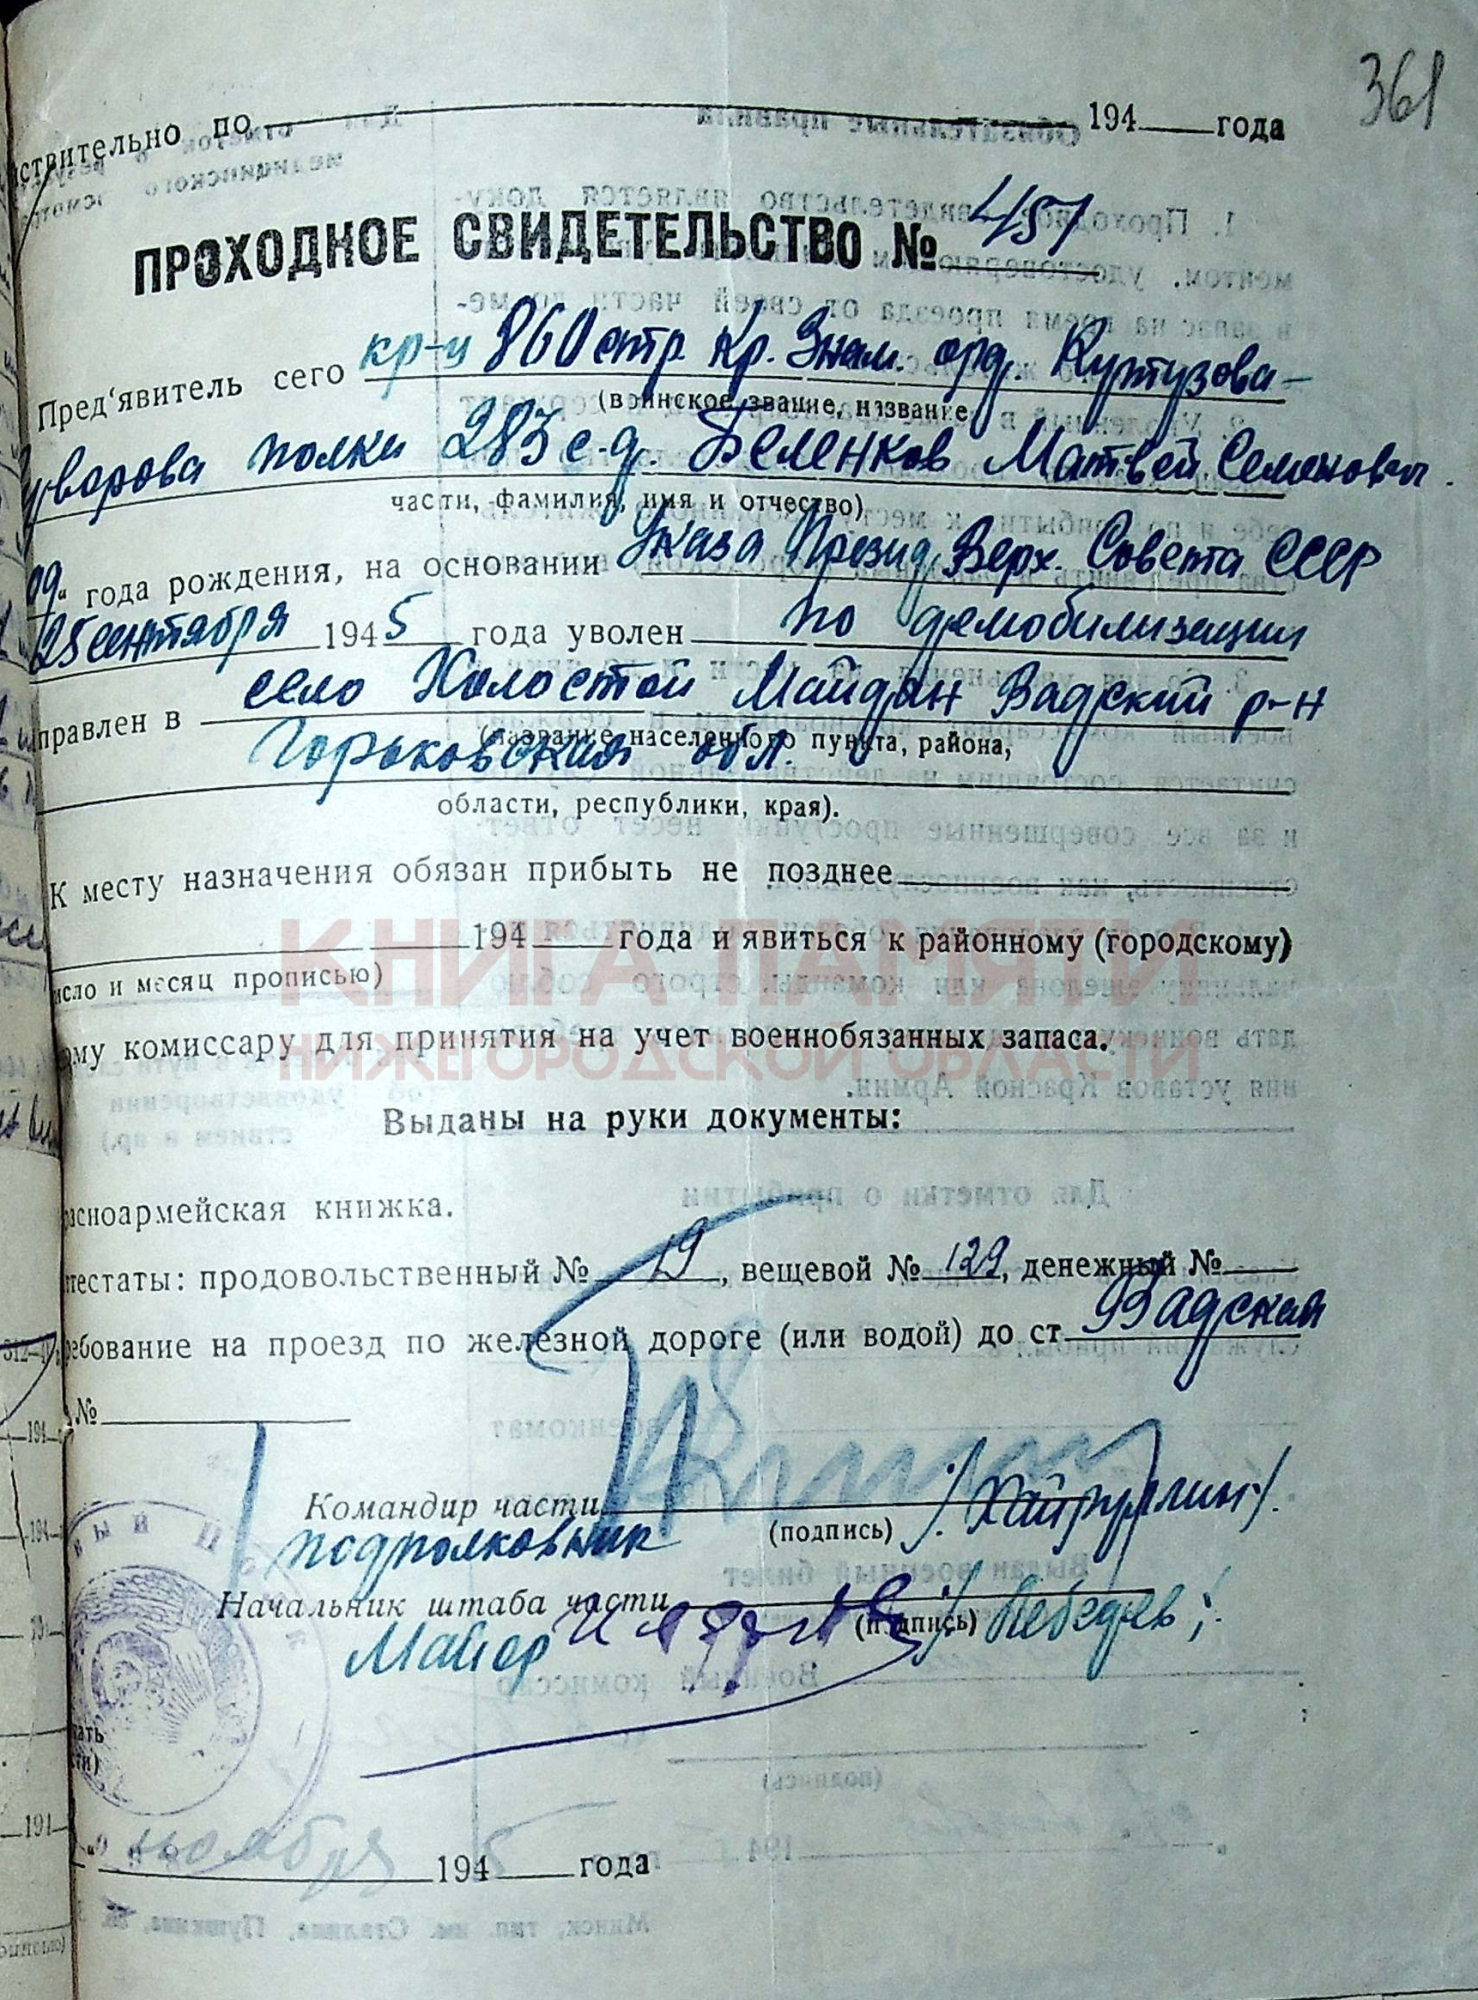 361
ствительно по 194 года
ПРОХОДНОЕ СВИДЕТЕЛЬСТВО № 457
Пред'явитель сего кр-ц 860 стр. Кр. Знам. орд. Кутузова-
(воинское звание, название
уворова полка 283 с.д. Беленков Матвей Семенович.
части, фамилия, имя и отчество)
09 года рождения, на основании Указа Презид. Верх. Совета СССР
25 сентября 1945 года уволен по демобилизации
правлен в село Холостой Майдан Вадский р-н
(название населенного пункта, района,
Горьковская обл.
области, республики, края).
К месту назначения обязан прибыть не позднее
194 года и явиться к районному (городскому)
исло и месяц прописью)
ому комиссару для принятия на учет военнобязанных запаса.
КНИГА ПАМЯТИ
НИЖЕГОРОДСКОЙ ОБЛАСТИ
Выданы на руки документы:
расноармейская книжка.
ттестаты: продовольственный № 19, вещевой № 129, денежный №
ребование на проезд по железной дороге (или водой) до ст Вадская
№
Командир части
(подпись) /Хайруллин/.
подполковник
Начальник штаба части
(подпись) /Лебедев/.
Майор
ноября 1945 года